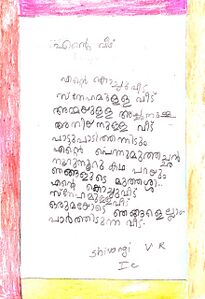 എന്റെ വീട്
എന്റെ കൊച്ചുവീട്
സ്നേഹമുള്ള വീട്
അമ്മയുള്ള അച്ഛനുള്ള
അനിയനുള്ള വീട്
പാട്ടുപാടിത്തന്നിടും
എന്റെ പൊന്നുമുത്തച്ഛൻ
നൂറുനൂറു കഥ പറയും
ഞങ്ങളുടെ മുത്തശ്ശി..
എന്റെ കൊച്ചുവീട്
സ്നേഹമുള്ള വീട്
ഒരുമയോടെ ഞങ്ങളെല്ലാം
പാർത്തിടുന്ന വീട്.
Shivangi V R
I C